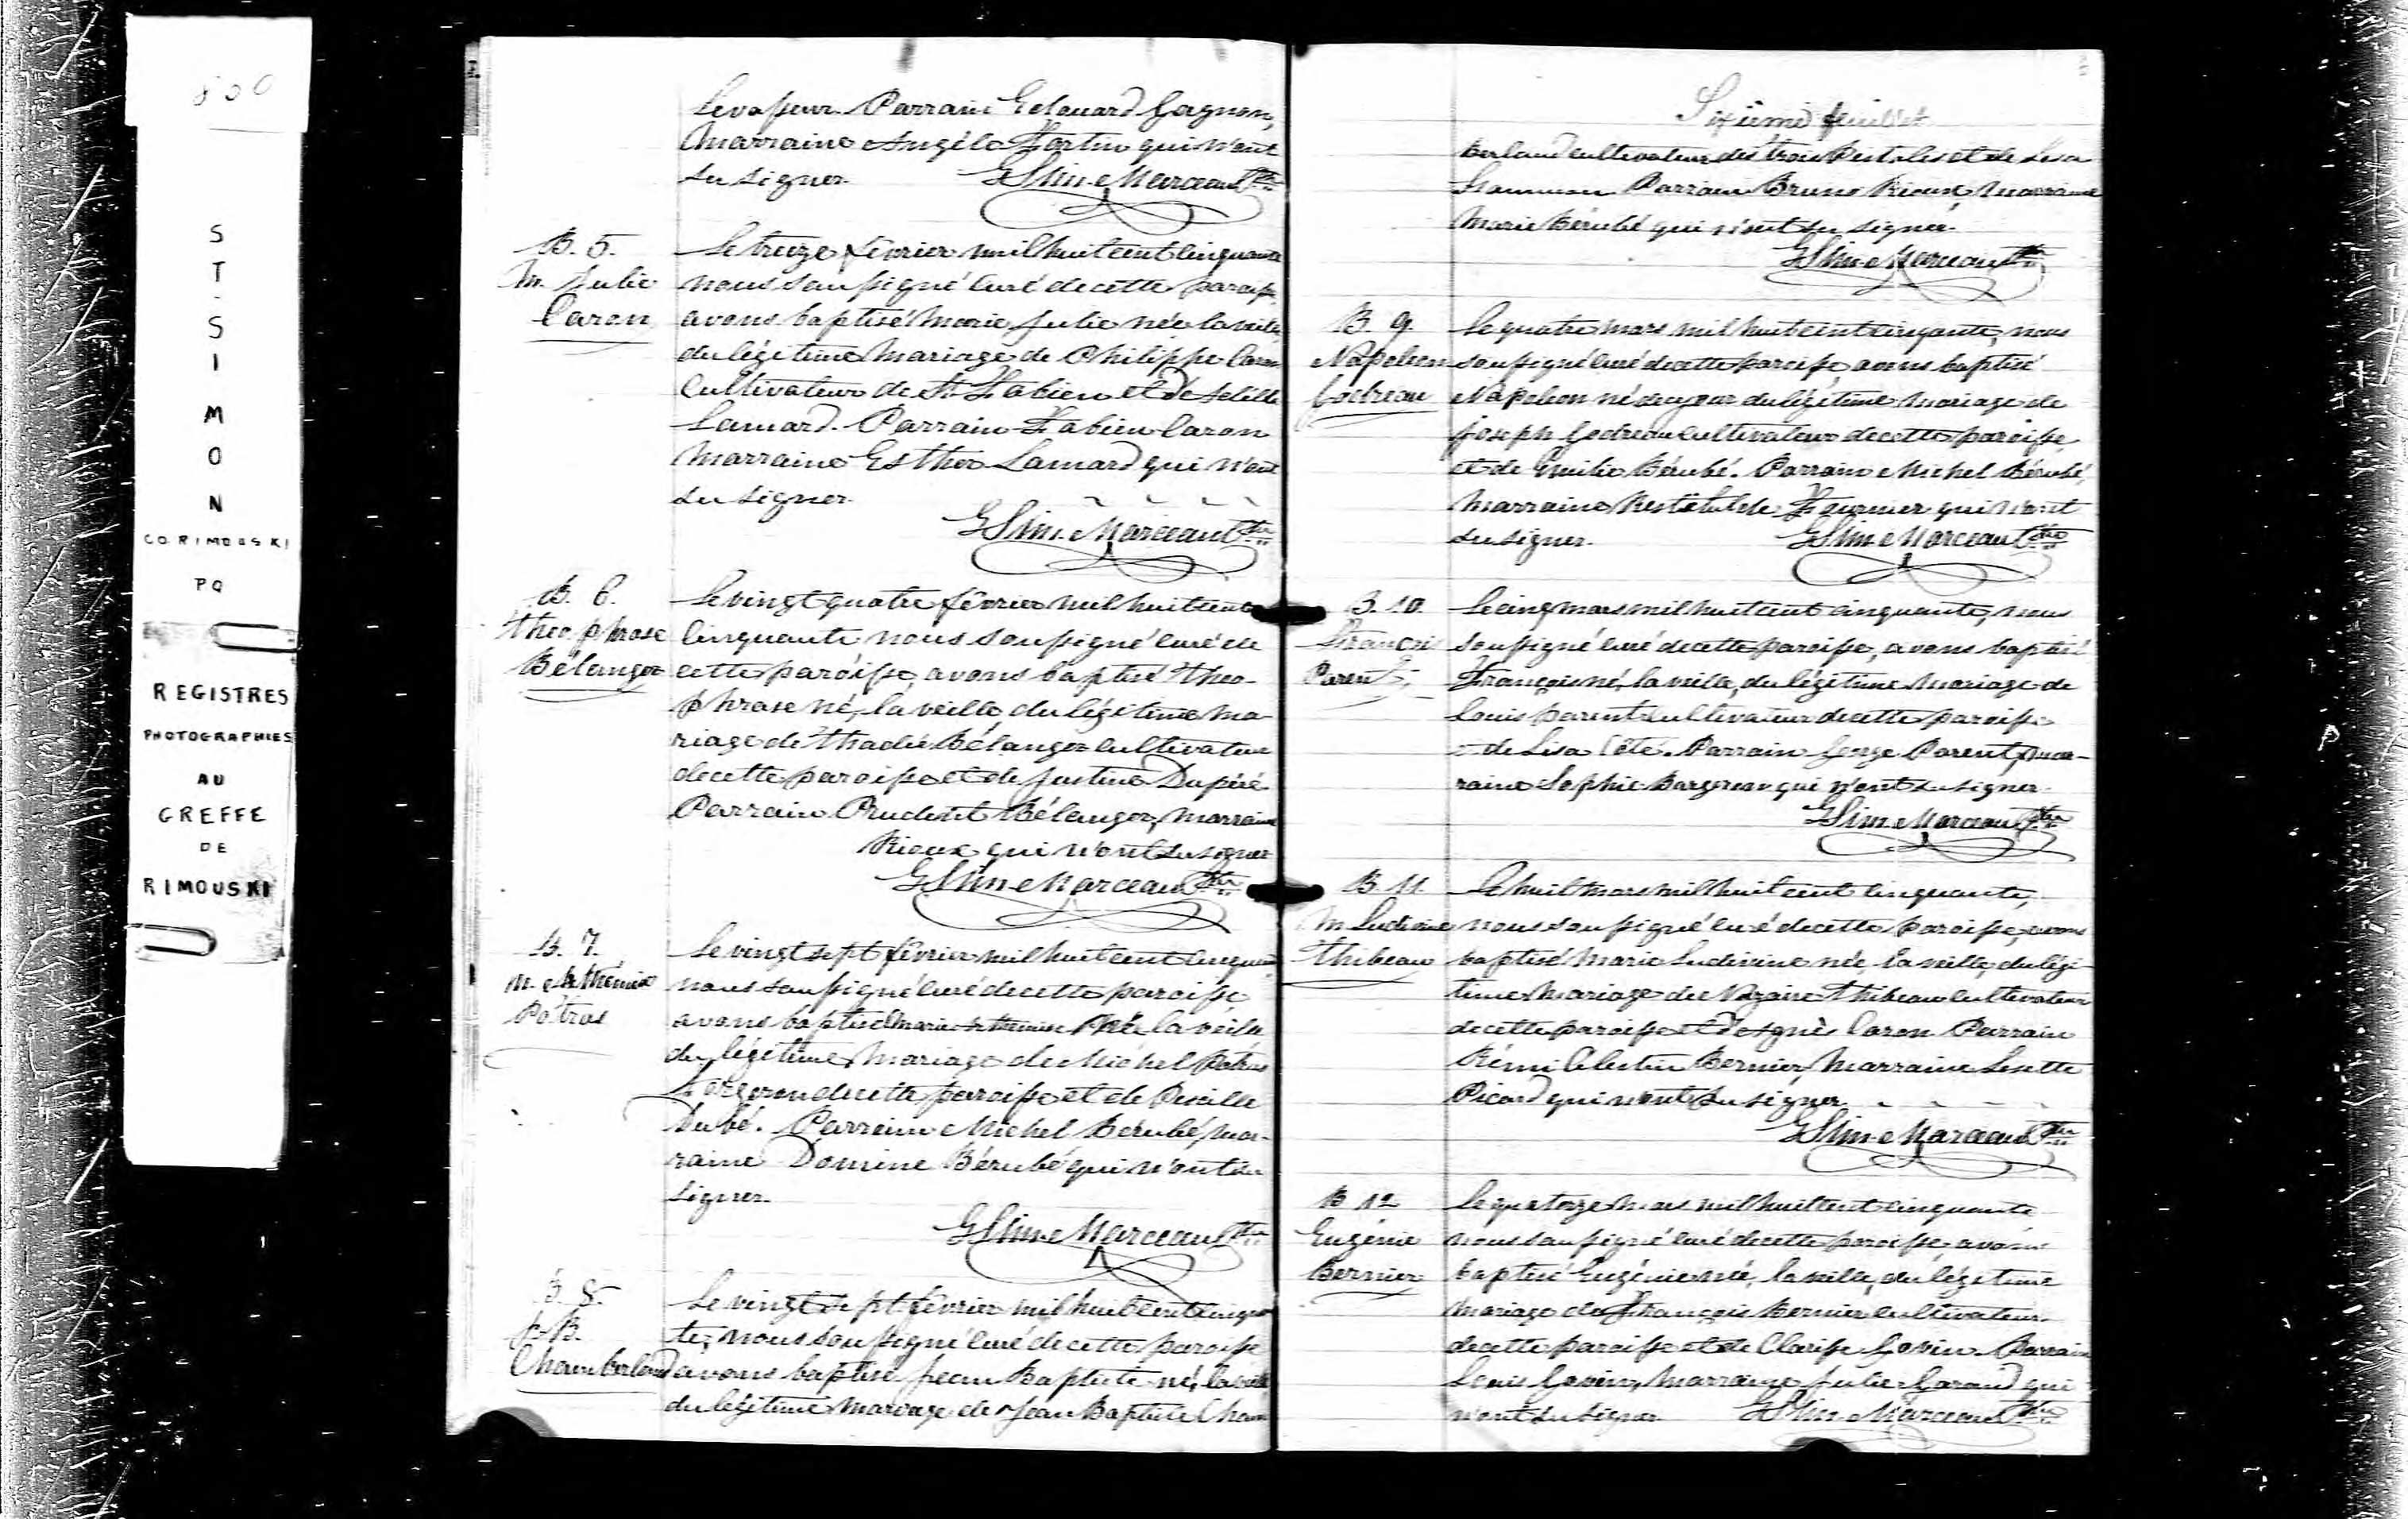 850
ST. SIMON
CO. RIMOUSKI
PQ
REGISTRES
PHOTOGRAPHIES
AU
GREFFE
DE
RIMOUSKI
Parrain Edouard Gagnon,
Marraine Angèle Fortin qui n'ont
su signer. GSim. Marceau Ptre
B. 5.
M. Julie
Caron
Le treize février mil huit cent cinquante
nous soussigné curé de cette paroisse,
avons baptisé Marie Julie née la veille,
du légitime mariage de Philippe Caron
Cultivateur de St Fabien et de
Lamard. Parrain Fabien Caron
Marraine Esther Lamard qui n'ont
su signer.
GSim. Marceau Ptre
B. 6.
Théophrase
Bélanger
Le vingt quatre février mil huit cent
cinquante, nous soussigné curé de
cette paroisse, avons baptisé Théo-
phrase né, la veille, du légitime ma-
riage de Thadée Bélanger cultivateur
de cette paroisse et de Justine Dupéré
Parrain Prudent Bélanger, Marraine
Rioux qui n'ont su signer
GSim. Marceau Ptre
B. 7.
M.
Pâtras
Le vingt sept février mil huit cent cinquante
nous soussigné curé de cette paroisse,
avons baptisé Marie née la veille
du légitime mariage de Michel Patras
Forgeron de cette paroisse et de
Dubé. Parrain Michel Bérubé, mar-
raine Domine Bérubé qui n'ont su
signer.
GSim. Marceau Ptre
B. 8.
J. B.
Chamberland
Le vingt sept février mil huit cent cinquan
te, nous soussigné curé de cette paroisse
avons baptisé Jean Baptiste né, la veille
du légitime mariage de Jean Baptiste Cham
Sixième feuillet
berland cultivateur des trois Pistoles et de Lisa
Parrain Bruno Rioux, Marraine
Marie Bérubé qui n'ont su signer.
GSim. Marceau Ptre
B. 9.
Napoléon
Godreau
Le quatre mars mil huit cent cinquante, nous
soussigné curé de cette paroisse, avons baptisé
Napoléon né de ce jour du légitime mariage de
Joseph Godreau cultivateur de cette paroisse,
et de Emilie Bérubé. Parrain Michel Bérubé,
Marraine Restitule Fournier qui n'ont
su signer. GSim. Marceau Ptre
B. 10.
François
Parent
Le cinq mars mil huit cent cinquante, nous
soussigné curé de cette paroisse, avons baptisé
François né, la veille, du légitime mariage de
Louis Parent cultivateur de cette paroisse
de Lisa Côté. Parrain George Parent, mar-
raine Sophie qui n'ont su signer.
GSim. Marceau Ptre
B. 11.
M. Ludivine
Thibeau
Le huit mars mil huit cent cinquante,
nous soussigné curé de cette paroisse, avons
baptisé Marie Ludivine née, la veille, du légi-
time mariage de Nazaire Thibeau cultivateur
de cette paroisse et d'Agnès Caron Parrain
Rémi Célestin Bernier, Marraine Lisette
Picard qui n'ont su signer.
GSim. Marceau Ptre
B 12
Eugénie
Bernier
Le quatorze mars mil huit cent cinquante
nous soussigné curé de cette paroisse, avons
baptisé Eugénie née, la veille, du légitime
mariage de François Bernier cultivateur
de cette paroisse et de Clarisse Gavin. Parrain
Louis Gavin, Marraine Julie Garand qui
n'ont su signer GSim. Marceau Ptre